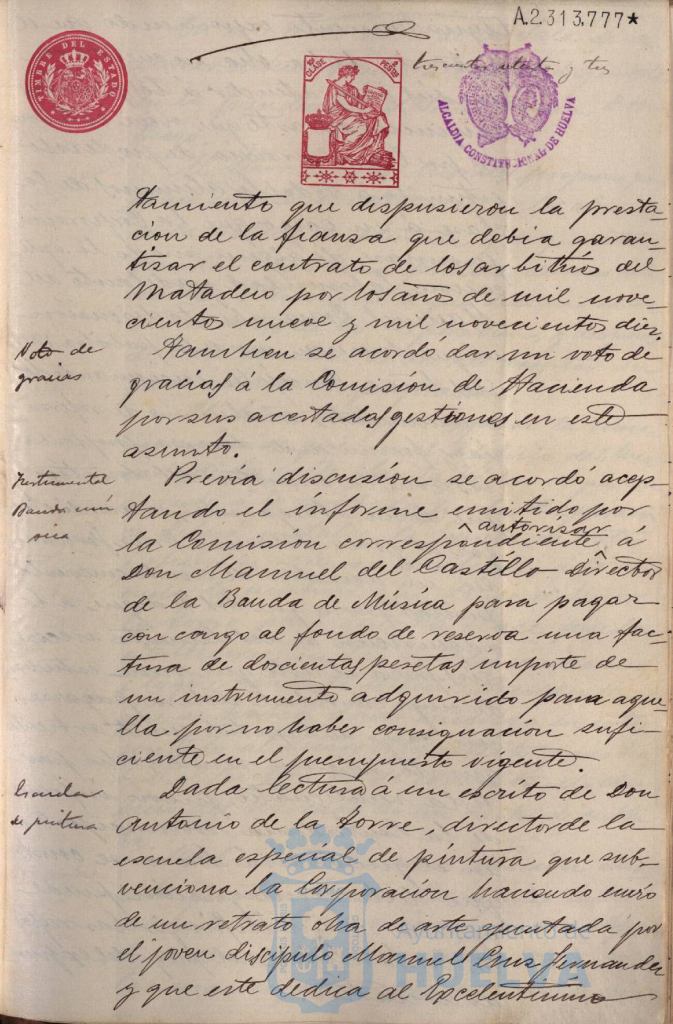 A.2.313.777*
TIMBRE DEL ESTADO
CLASE
PESETAS
trescientos setenta y tres
ALCALDIA CONSTITUCIONAL DE HUELVA
tamiento que dispusieron la presta-
cion de la fianza que debia garan-
tizar el contrato de los arbitrios del
Matadero por los años de mil nove-
cientos nueve y mil novecientos diez.
Voto de
gracias
Tambien se acordó dar un voto de
gracias á la Comisión de Hacienda
por sus acertadas gestiones en este
asunto.
Instrumental
Banda mú
sica
Previa discusión se acordó acep-
tando el informe emitido por
la Comisión correspondiente, autorizar á
Don Manuel del Castillo Director
de la Banda de Música para pagar
con cargo al fondo de reserva una fac-
tura de doscientas pesetas importe de
un instrumento adquirido para aque-
lla por no haber consignación sufi-
ciente en el presupuesto vigente.
Escuela
de pintura
Dada lectura á un escrito de Don
Antonio de la Torre, director de la
escuela especial de pintura que sub-
venciona la Corporación haciendo envio
de un retrato obra de arte ejecutada por
el joven discipulo Manuel Cruz Fernandez
y que este dedica al Excelentisimo
Ayuntamiento de
HUELVA